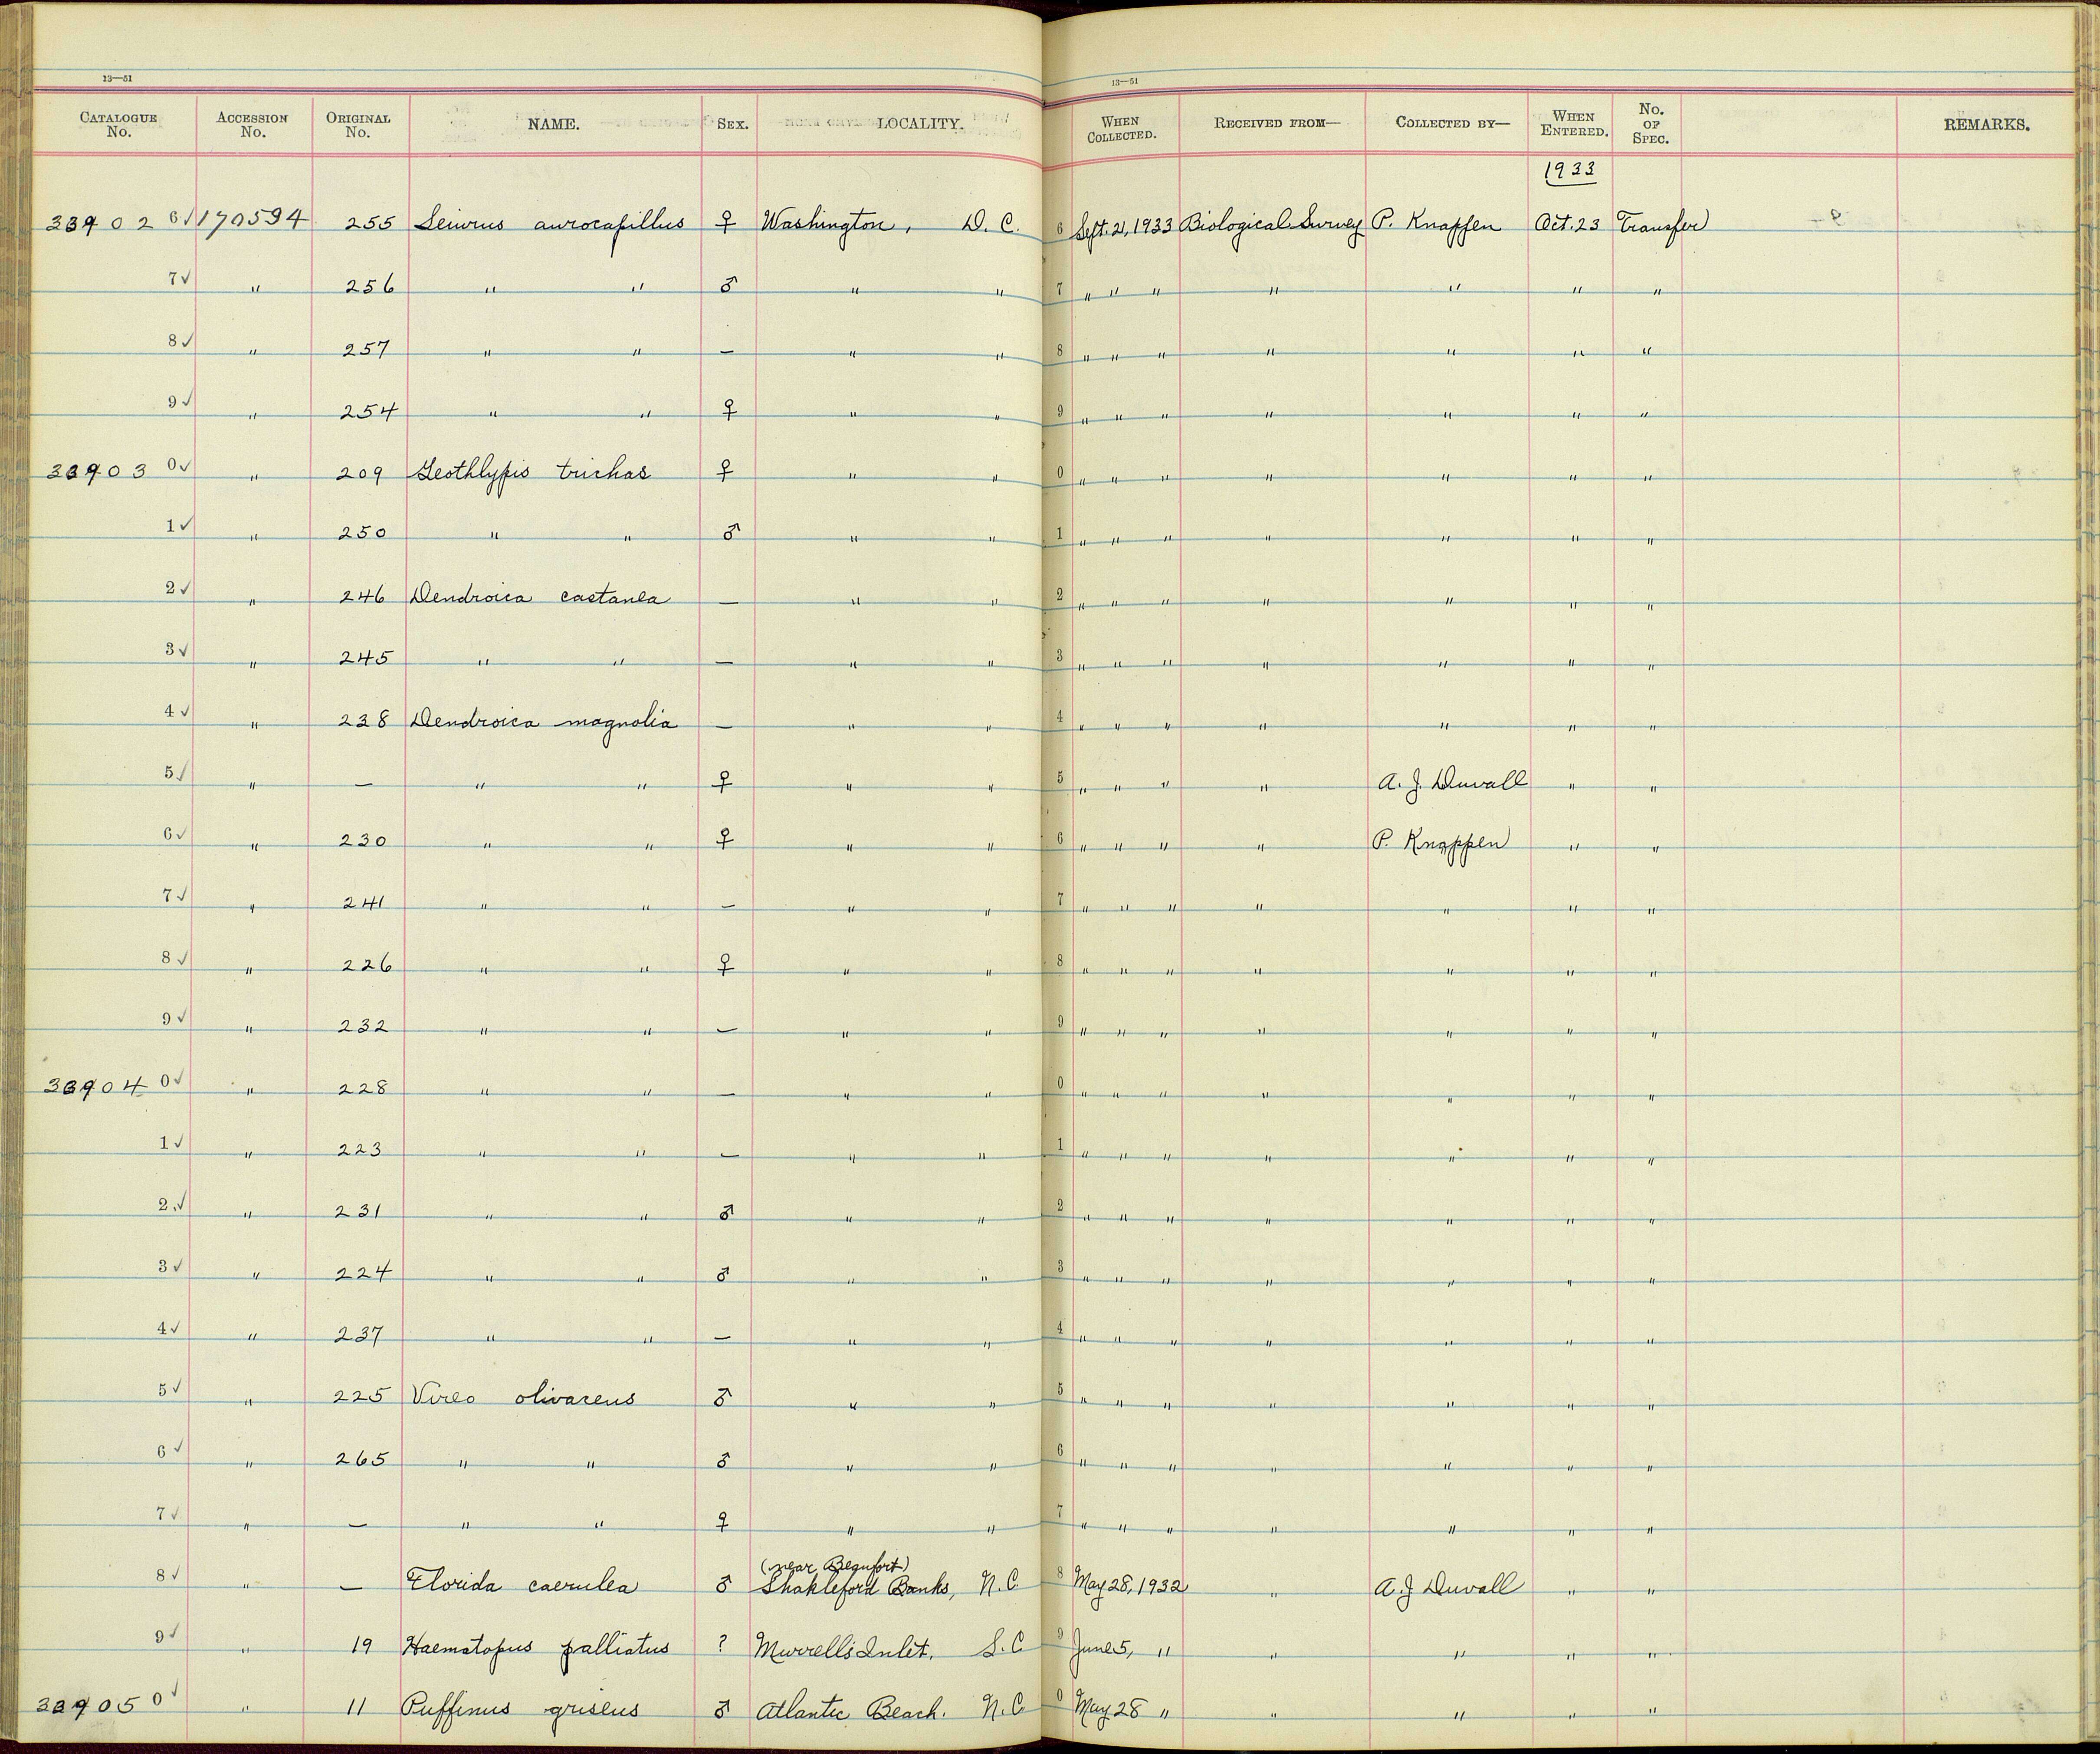 13—51 13—51
CATALOGUE No. ACCESSION No. ORIGINAL No. NAME. SEX. LOCALITY. WHEN COLLECTED. RECEIVED FROM— COLLECTED BY— WHEN ENTERED. No. OF SPEC. REMARKS.
1933
33902 6✓ 170594 255 Seiurus aurocapillus ♀ Washington, D. C. 6 Sept. 2, 1933 Biological Survey P. Knappen Oct. 23 Transfer
7✓ " 256 " " ♂ " " 7 " " " " " " "
8✓ " 257 " " — " " 8 " " " " " " "
9✓ " 254 " " ♀ " " 9 " " " " " " "
33903 0✓ " 209 Geothlypis trichas ♀ " " 0 " " " " " " "
1✓ " 250 " " ♂ " " 1 " " " " " " "
2✓ " 246 Dendroica castanea — " " 2 " " " " " " "
3✓ " 245 " " — " " 3 " " " " " " "
4✓ " 238 Dendroica magnolia — " " 4 " " " " " " "
5✓ " — " " ♀ " " 5 " " " " A. J. Duvall " "
6✓ " 230 " " ♀ " " 6 " " " " P. Knappen " "
7✓ " 241 " " — " " 7 " " " " " " "
8✓ " 226 " " ♀ " " 8 " " " " " " "
9✓ " 232 " " — " " 9 " " " " " " "
33904 0✓ " 228 " " — " " 0 " " " " " " "
1✓ " 223 " " — " " 1 " " " " " " "
2✓ " 231 " " ♂ " " 2 " " " " " " "
3✓ " 224 " " ♂ " " 3 " " " " " " "
4✓ " 237 " " — " " 4 " " " " " " "
5✓ " 225 Vireo olivaceus ♂ " " 5 " " " " " " "
6✓ " 265 " " ♂ " " 6 " " " " " " "
7✓ " — " " ♀ " " 7 " " " " " " "
(near Beaufort)
8✓ " — Florida caerulea ♂ Shakleford Banks, N. C. 8 May 28, 1932 " A. J Duvall " "
9✓ " 19 Haematopus palliatus ? Murrells Inlet, S. C 9 June 5, " " " " "
33905 0✓ " 11 Puffinus griseus ♂ Atlantic Beach. N. C 0 May 28 " " " " "